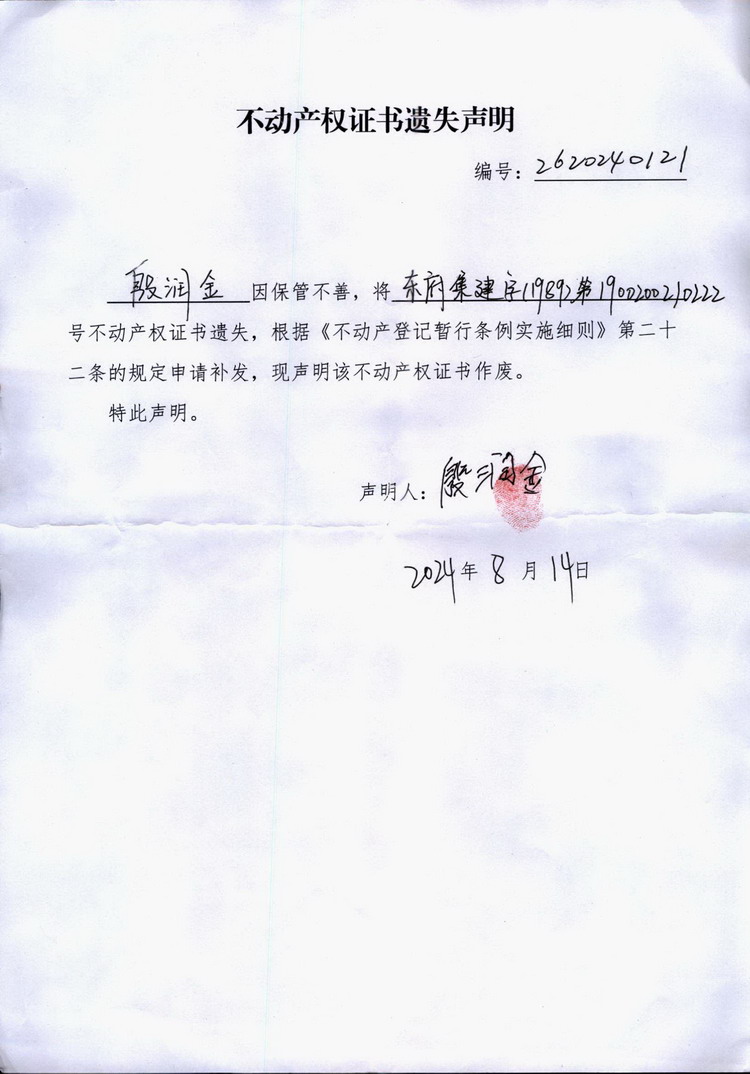 不动产权证书遗失声明
编号：2620240121
殷润金因保管不善，将东府集建字(1989)第1900200210222
号不动产权证书遗失，根据《不动产登记暂行条例实施细则》第二十
二条的规定申请补发，现声明该不动产权证书作废。
特此声明。
声明人：殷润金
2024年8月14日